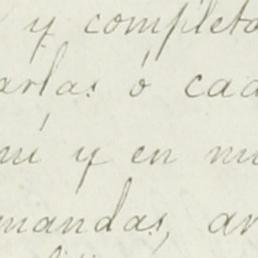 y completa
arlas ó cad
mí y en mi
mandas, an